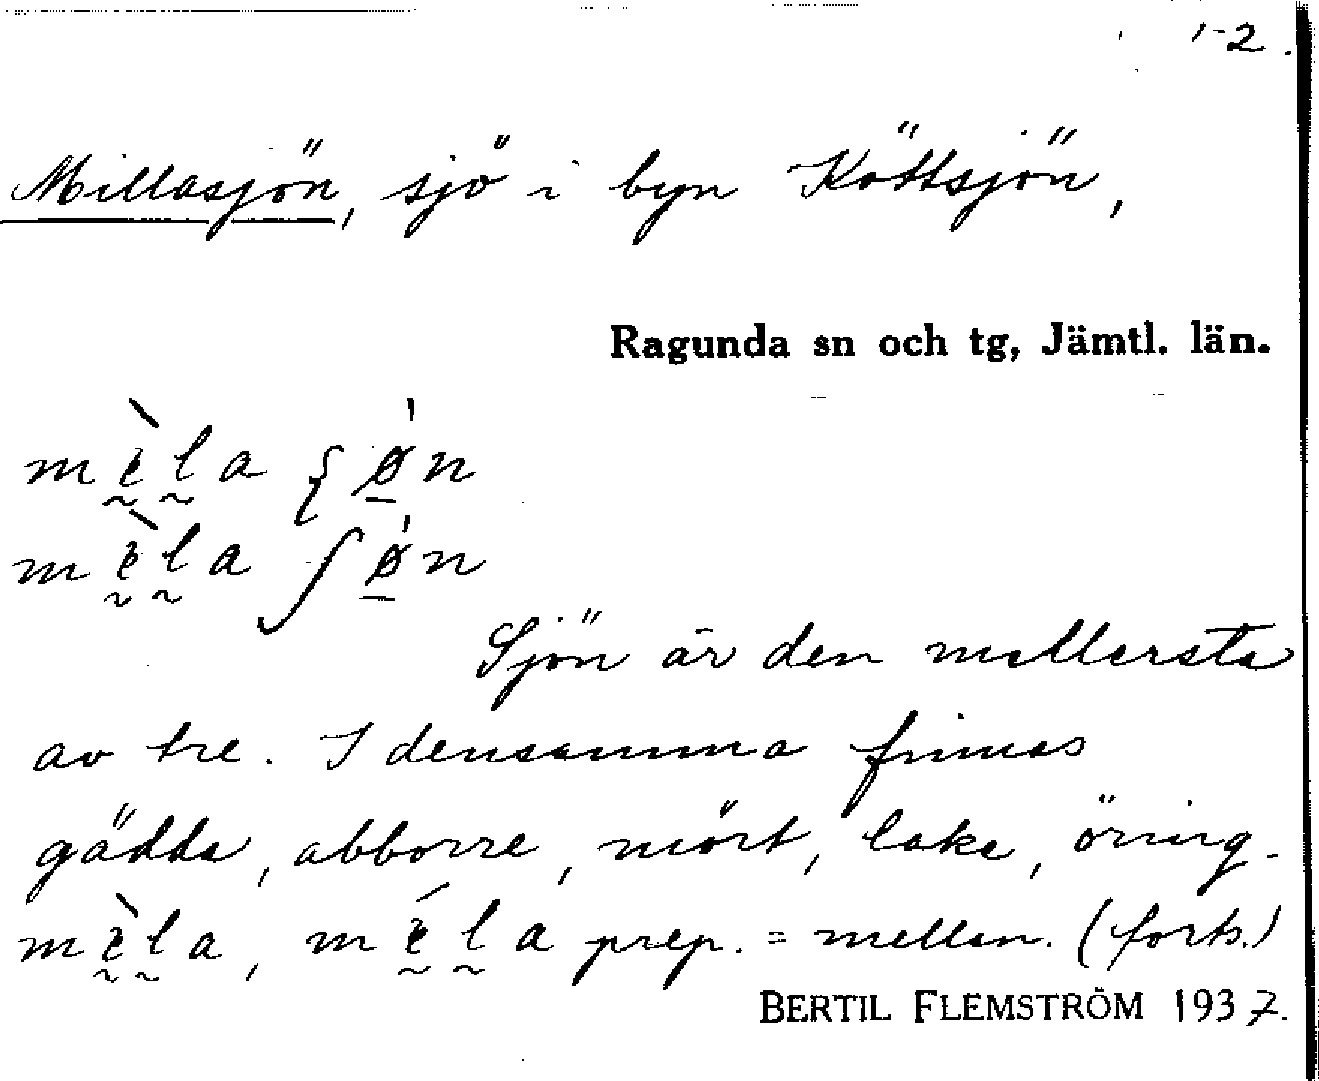 1-2.
Millasjön, sjö i byn Köttsjön,
Ragunda sn och tg, Jämtl. län.
Sjön är den mellersta
av tre. I densamma finnas
gädda, abborre, mört, lake, öring.
prep. = mellan. (forts.)
BERTIL FLEMSTRÖM 1937.